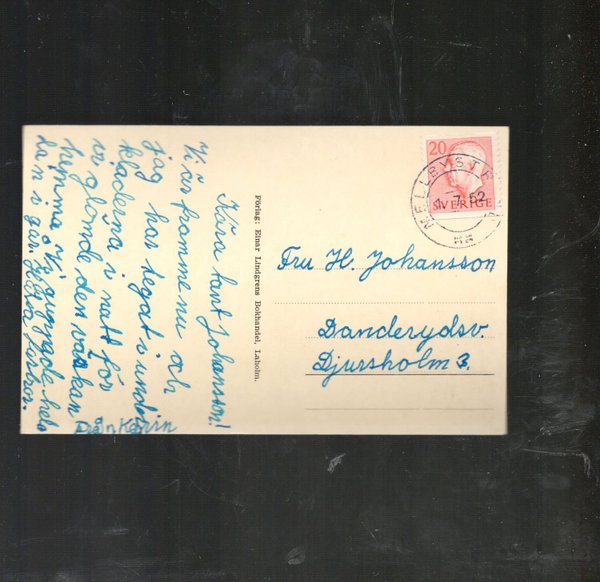 Kära tant Johansson!
Vi är framme nu och
jag har legat i under
kläderna i natt för
vi glömde den väskan
hemma. Vi gungade hela
dan i går. Hälsn.
från Karin
Förlag: Einar Lindgrens Bokhandel, Laholm.
20
SVERIGE
MELLBYSTR
7 52
Fru H. Johansson
Danderydsv.
Djursholm 3.